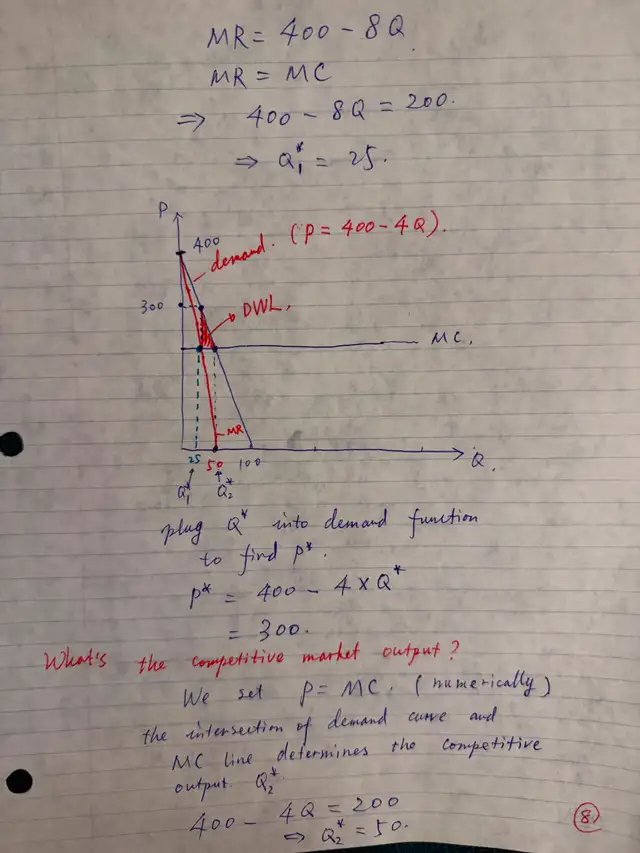 MR = 400 - 8Q
MR = MC
⇒ 400 - 8Q = 200.
⇒ Q₁* = 25.
P
400
demand. (P = 400 - 4Q).
300
DWL.
MC.
MR
25 50 100 Q.
Q₁* Q₂*
plug Q* into demand function
to find P*.
P* = 400 - 4 × Q*
= 300.
What's the competitive market output?
We set P = MC. (numerically)
the intersection of demand curve and
MC line determines the competitive
output Q₂*.
400 - 4Q = 200
⇒ Q₂* = 50.
8